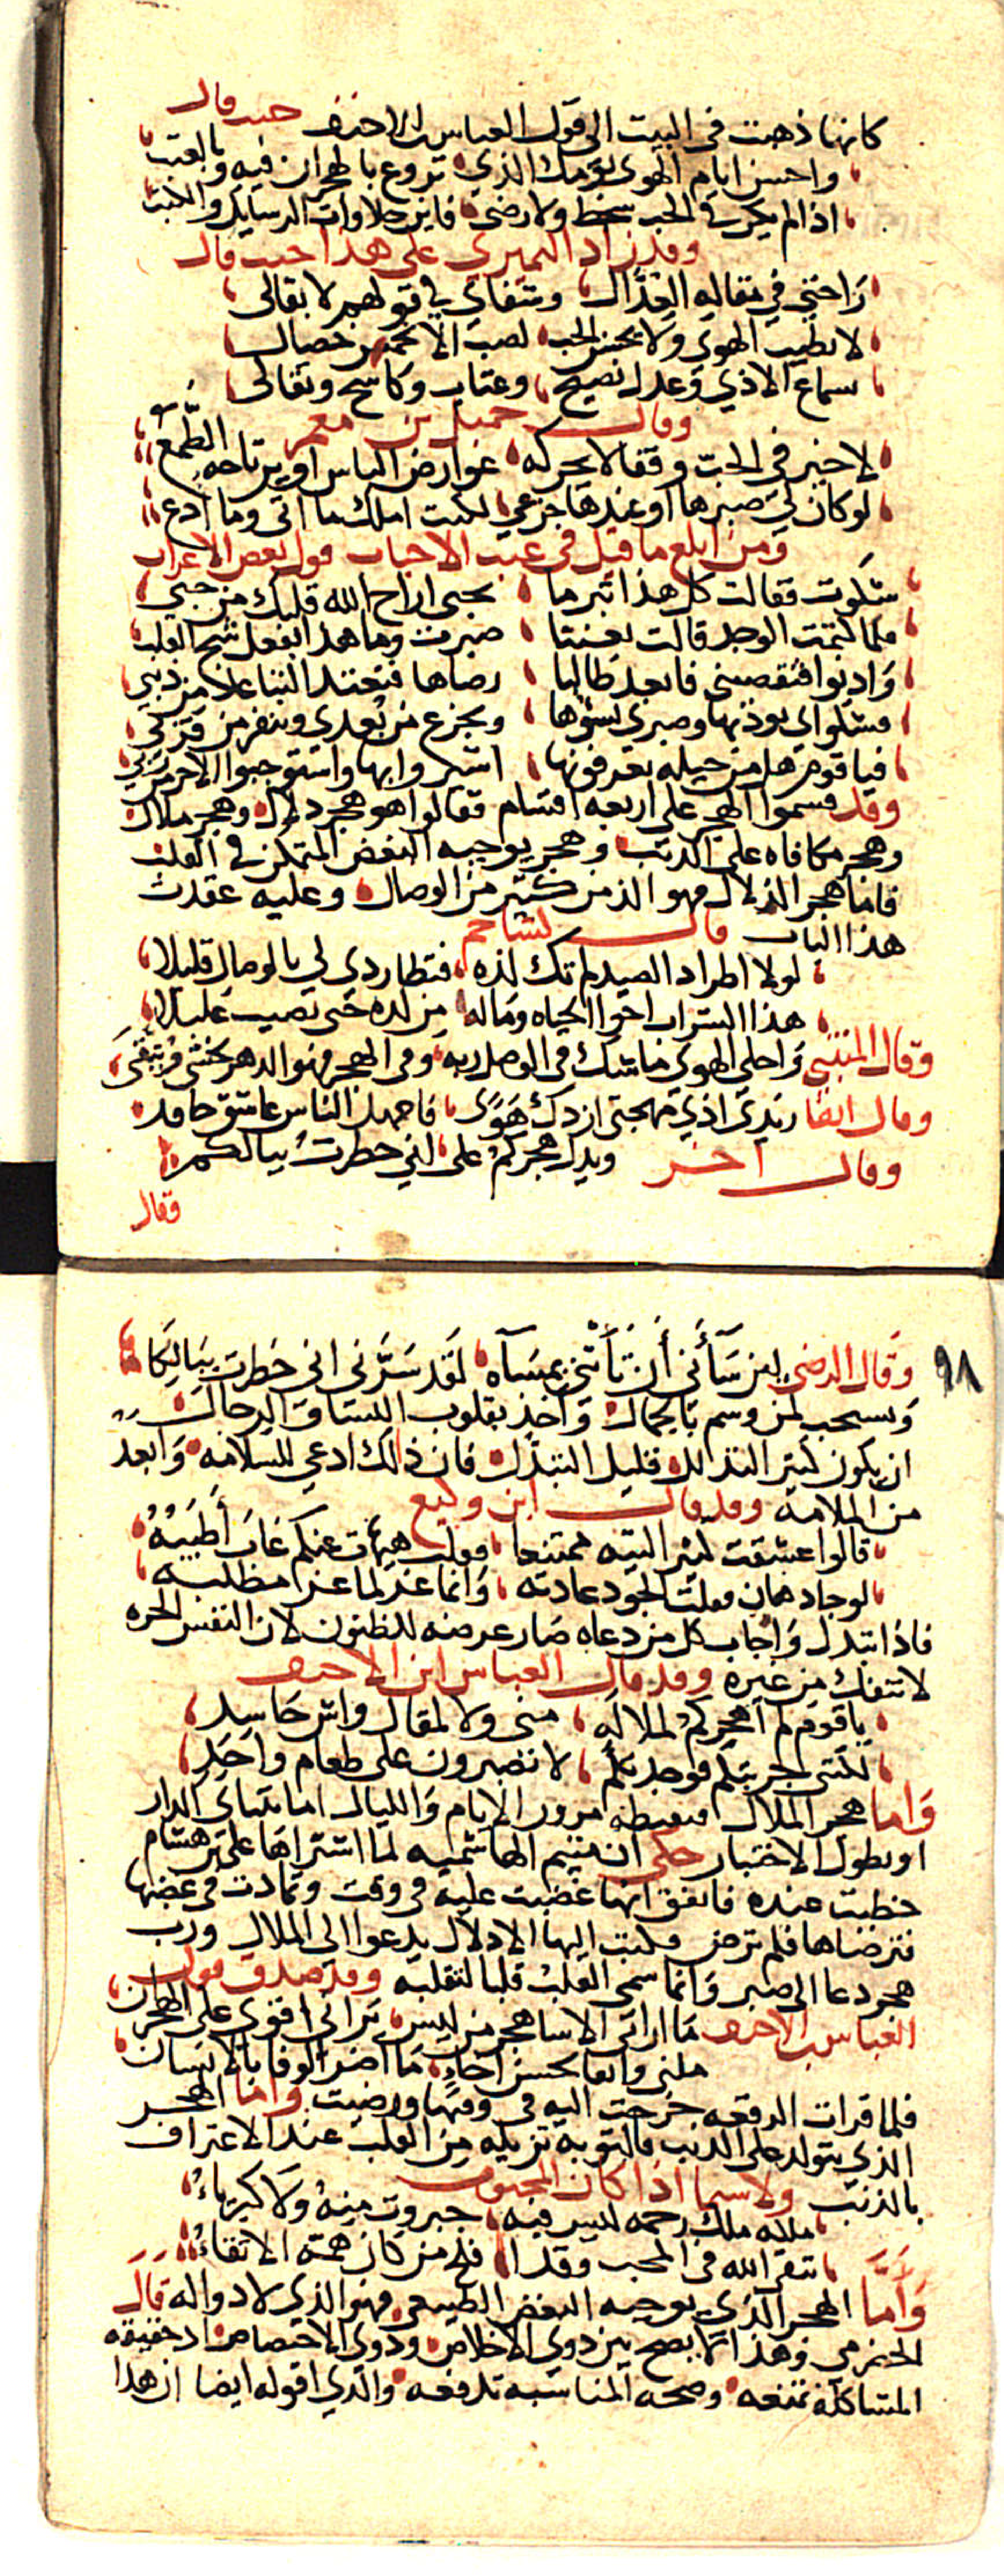 كانها ذهبت فى البيت الى قول العباس ابن الاحنف حيث قال
واحسن ايام الهوى يومك الذي تروع بالهجران فيه وبالعتب
اذا لم يكن فى الحب سخط ولا رضى فاين حلاوات الرسايل والكتب
وقد زاد النميري على هذا حيث قال
راحتي في مقالة العذال وشفاي في قولهم لا تقالى
لا يطيب الهوى ولا يحسن الحب لصب الا بخمس خصال
سماع الاذي وعذل نصيح وعتاب وكاشح وتقالى
وقال جميل بن معمر
لا خير فى الحب وقفا لا يحركه عوارض الياس او يرتاحه الطمع
لو كان لي صبرها او عندها جزعي لكنت املك ما اتى وما ادع
ومن ابلغ ما قيل فى عتب الاحباب قول بعض الاعراب
شكوت فقالت كل هذا تبرما بحبى اراح الله قلبك من حبي
فلما كتمت الحب قالت تعنتا صبرت وما هذا بفعل شجي القلب
وادنوا فتقصيني فابعد طالبا رضاها فتعتد التباعد من ذنبي
فشكواي يوذيها وصبري يسؤها ويجزع من بعدي وتنفر من قربي
فيا قوم هل من حيله تعرفونها اشيروا بها واستوجبوا الاجر من ربي
وقد قسموا الهجر على اربعه اقسام فقالوا هو هجر دلال وهجر ملال
وهجر مكافاه على الذنب وهجر يوجبه البغض المتمكن في القلب
فاما هجر الدلال فهو الذ من كثير من الوصال وعليه عقدت
هذا الباب قال كشاجم
لولا اطراد الصيد لم تك لذه فتطاردي لي بالوصال قليلا
هذا الشراب اخوا الحياه وماله من لذه حتى يصيب غليلا
وقال المتنبي واحلى الهوى ما شك فى الوصل ربه وفى الهجر فهو الدهر يخشى ويتقى
وقال ايضا زيدي اذي مهجتي ازدك هوى فاجهل الناس عاشق حاقد
وقال اخر ويدل هجركم على انى خطرت ببالكم
فقال
٩٨
وقال الرضى لين ساني أن تأتنى بمساة لقد سرني اني خطرت ببالكا
ويستحب لمن وسم بالجمال واخذ بقلوب النسا والرجال
ان يكون كثير التذلل قليل التبذل فان ذلك ادعى للسلامه وابعد
من الملامه وقد قال ابن وكيع
قالوا عشقت كثير التيه ممتنعا فقلت هيهات عنكم غاب أطيبه
لو جاد هان وقلت الجود عادته وانما عز لما عز مطلبه
فاذا تبذل واجاب كل من دعاه صار عرضه للظنون لان النفس الحره
لا تنفك من غيره وقد قال العباس ابن الاحنف
يا قوم لم اهجركم لملالة منى ولا لمقال واش حاسد
لكننى جربتكم فوجدتكم لا تصبرون على طعام واحد
واما هجر الملال مرور الايام والليال اما بتناى الدار
او بطول الاختبار حكى ان متيم الهاشميه لما اشتراها على بن هشام
حظيت عنده فاتفق انها غضبت عليه فى وقت وتمادت فى غضبها
فترضاها فلم ترض فكتب اليها الادلال يدعوا الى الملال ورب
هجر دعا الى صبر وانما سمى القلب قلبا لتقلبه وقد صدق قول
العباس بن الاحنف ما اراني الا ساهجر من ليس تراني اقوى على الهجران
ملني واثقا بحسن اخاي ما اضر الوفا بالانسان
فلما قرات الرقعه خرجت اليه فى وقتها ورضيت واما الهجر
الذي يتولد على الذنب فالتوبة تزيله من القلب عند الاعتراف
بالذنب ولا سيما اذا كان المحبوب
ملكه ملك رحمه ليس فيه جبروت منه ولا كبرياء
يتقى الله فى المحب وقد افلح من كان همه الاتقاء
وأما الهجر الذي يوجبه البغض الطبيعى فهو الذي لا دوا له قال
وهذا انما يصح بين ذوي الاخلاص وذوي الاختصاص اذ حقيقه
المشاكلة تمنعه وصحه المناسبه تدفعه والذي اقوله ايضا ان هذا